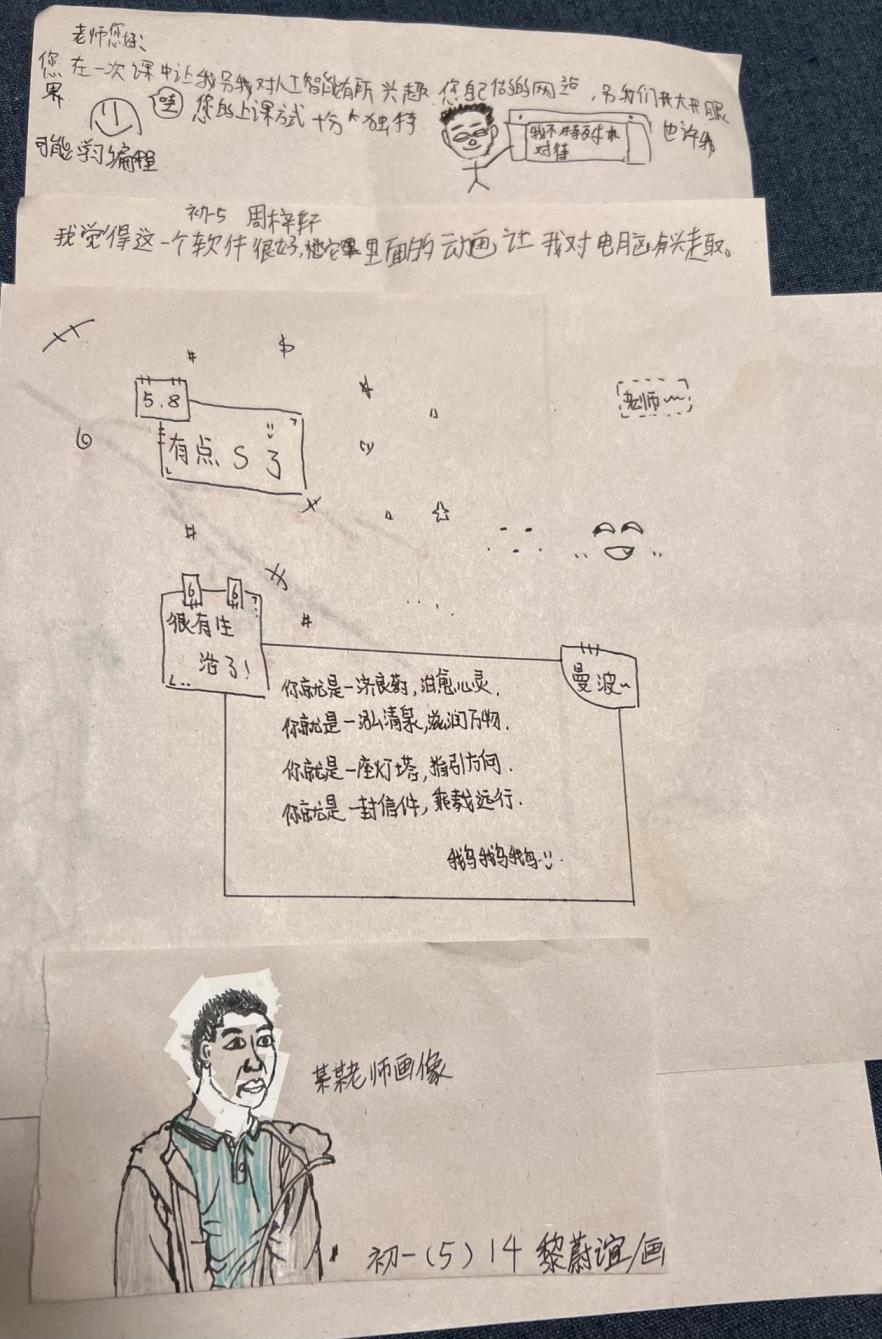 老师您好:
在一次课中让我另我对人工智能有所兴趣.您自己做的网站,另我们大开眼
您
界
哇
您的上课方式十分独特
也许我
可能学习编程
初一5 周梓轩
我觉得这一个软件很好,里面的动画让我对电脑有兴趣。
5.8
有点S了
老师~
6 6
很有生
活了!
曼波~
你就是一济良药,治愈心灵.
你就是一泓清泉,滋润万物.
你就是一座灯塔,指引方向.
你就是一封信件,乘载远行.
我吗我吗我吗
某某老师画像
初一(5)14 黎蔚谊/画